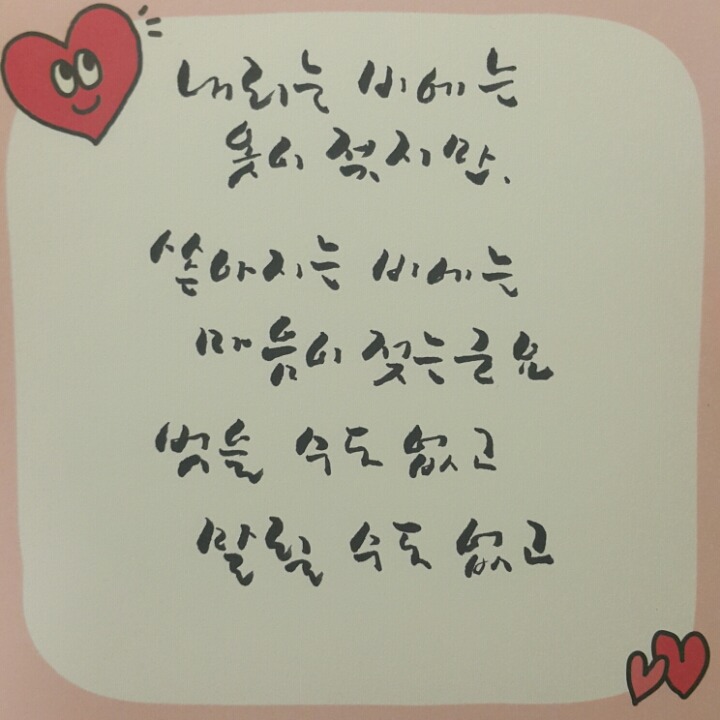 내리는 비에는
옷이 젖지만,
쏟아지는 비에는
마음이 젖는군요
벗을 수도 없고
말릴 수도 없고